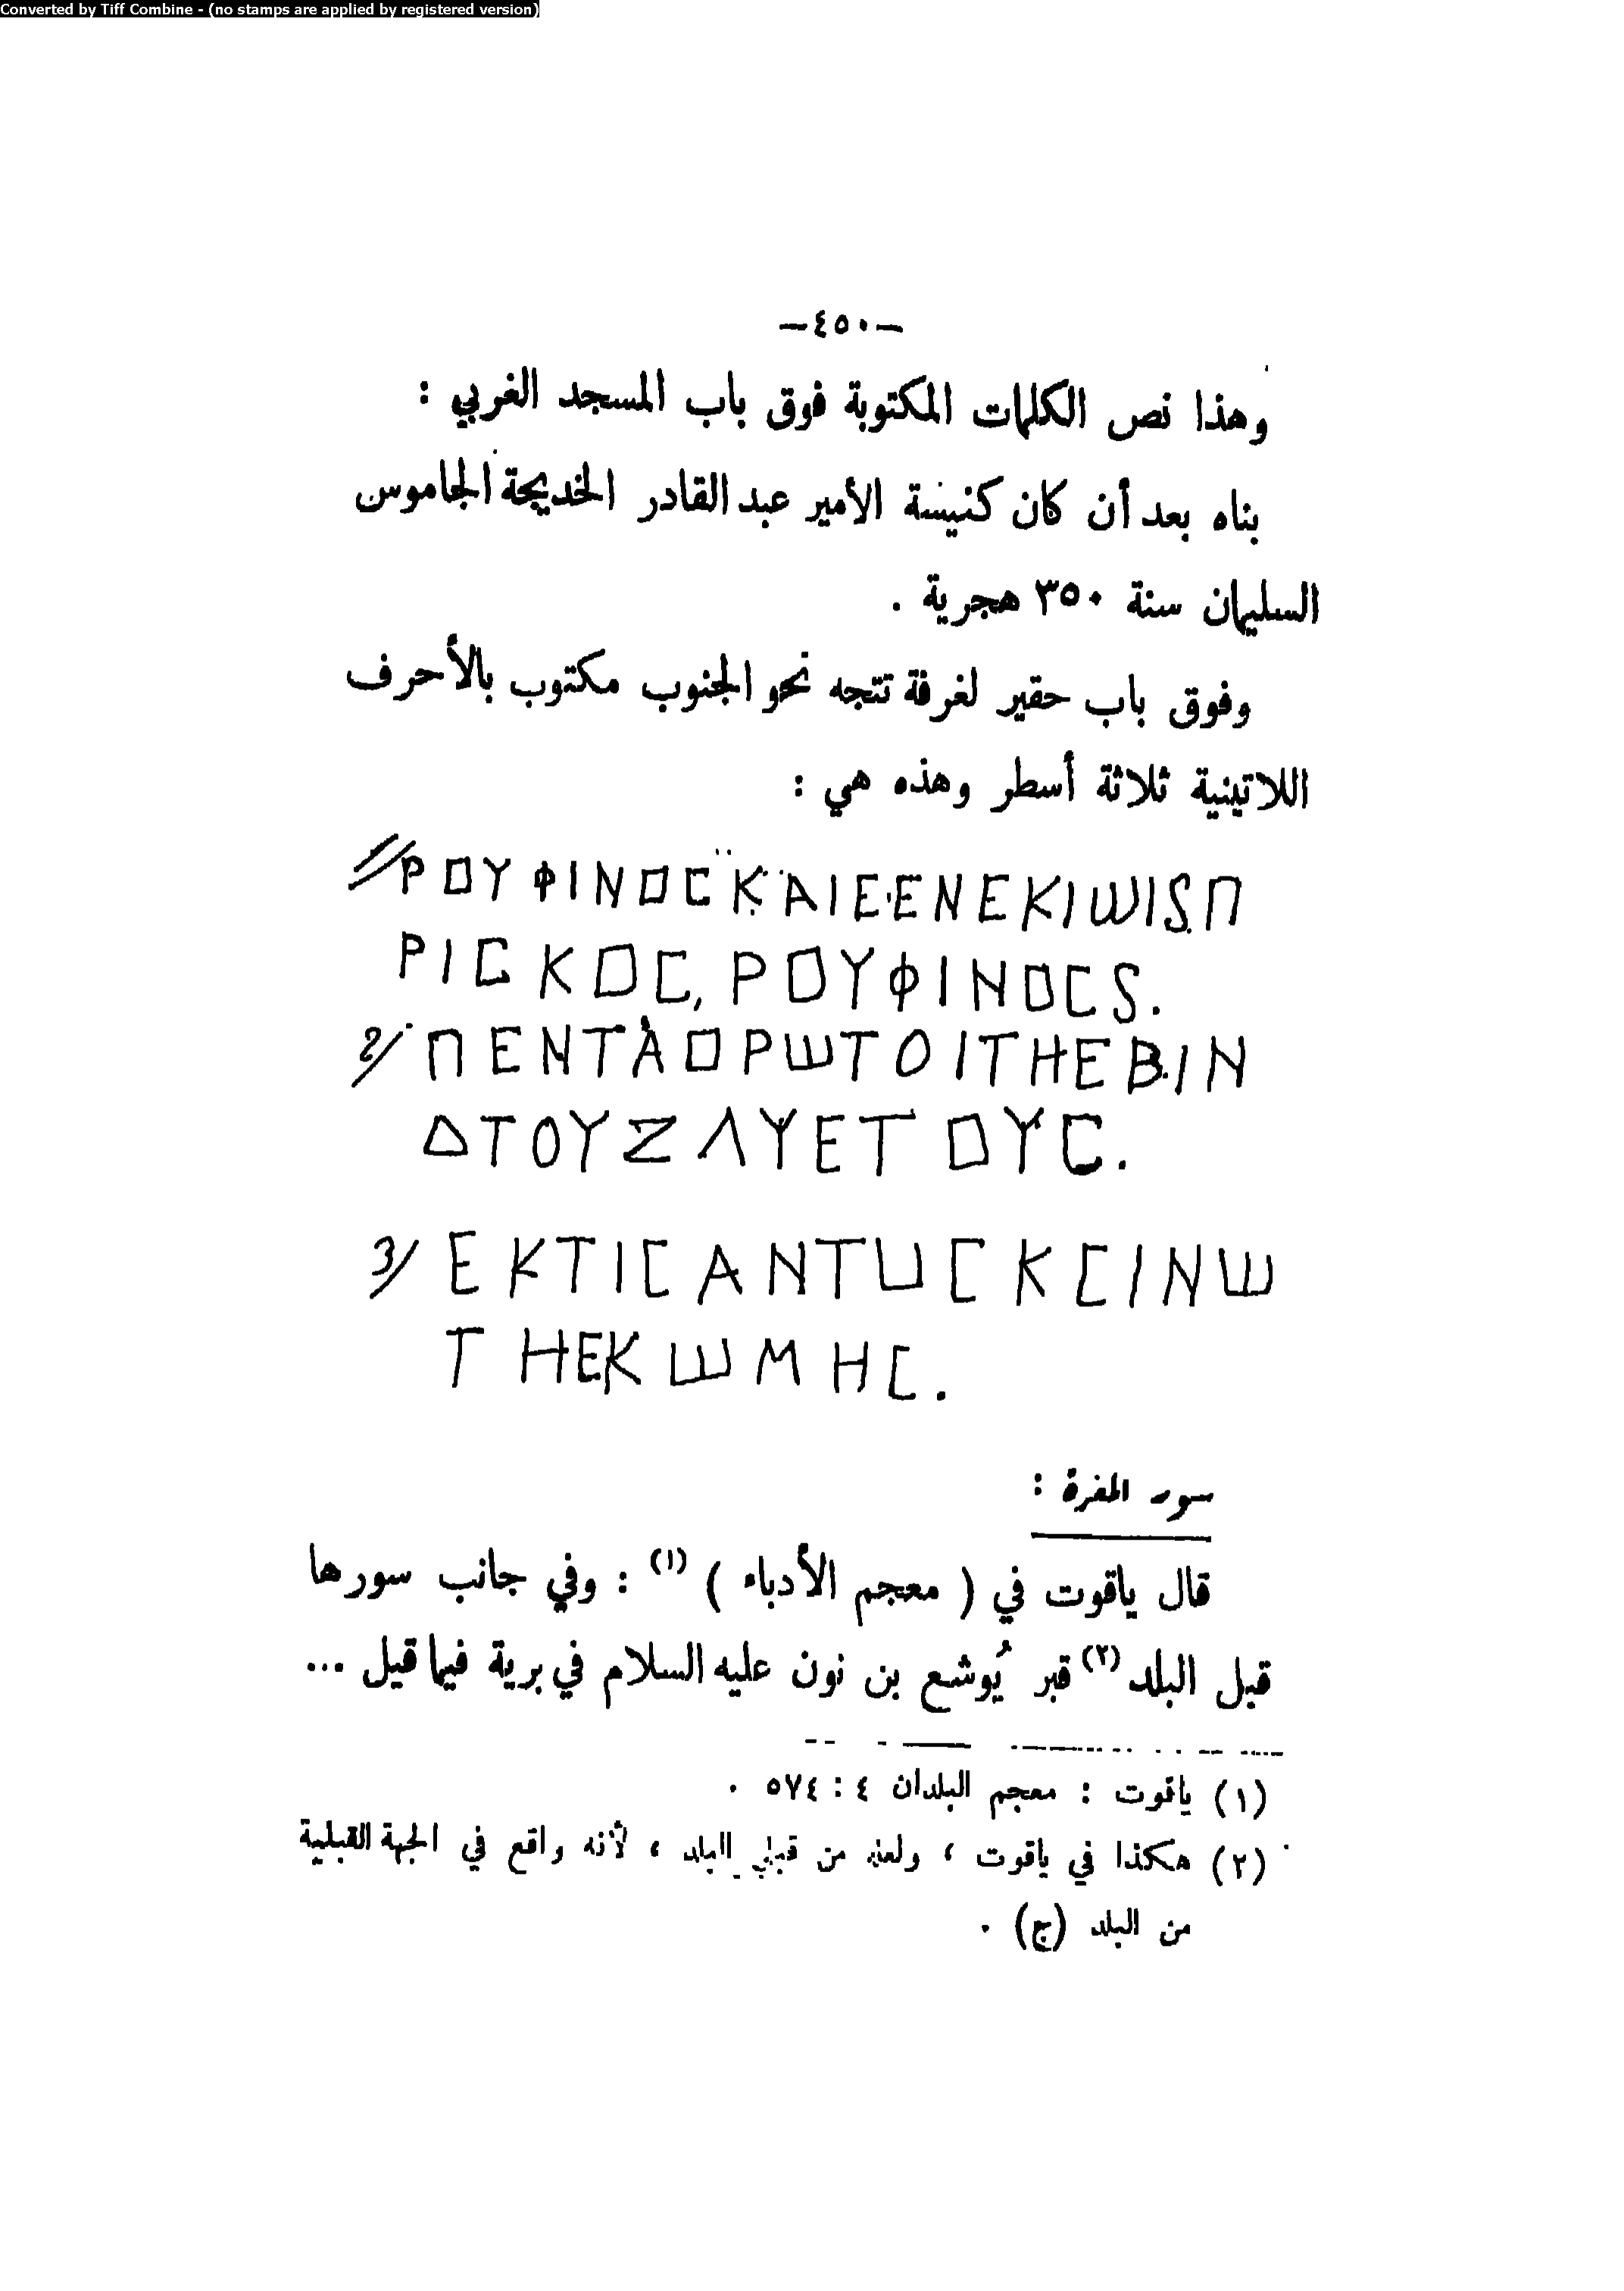 Converted by Tiff Combine - (no stamps are applied by registered version)
—٤٥٠—
وهذا نص الكلمات المكتوبة فوق باب المسجد الغربي :
بناه بعد أن كان كنيسة الأمير عبد القادر الخديجة الجاموس
السليمان سنة ٣٥٠ هجرية .
وفوق باب حقير لغرفة تتجه نحو الجنوب مكتوب بالأحرف
اللاتينية ثلاثة أسطر وهذه هي :
1/ ΡΟΥΦΙΝΟC ΚΑΙΕΕΝΕΚΙωΙSΠ
ΡΙCΚΟC, ΡΟΥΦΙΝΟCS.
2/ ΠΕΝΤΑΟΡωΤΟΙΤΗΕΒ.ΙΝ
ΔΤΟΥΖΛΥΕΤΟΥC.
3/ ΕΚΤΙCΑΝΤUCΚCΙΝω
ΤΗΕΚωΜΗC.
سور المغرة :
قال ياقوت في ( معجم الأدباء ) (١) : وفي جانب سورها
قبل البلد (٢) قبر يُوشع بن نون عليه السلام في برية فيما قيل ...
(١) ياقوت : معجم البلدان ٤ : ٥٧٤ .
(٢) هكذا في ياقوت ، ولعله من قبلي البلد ، لأنه واقع في الجهة القبلية
من البلد (ج) .